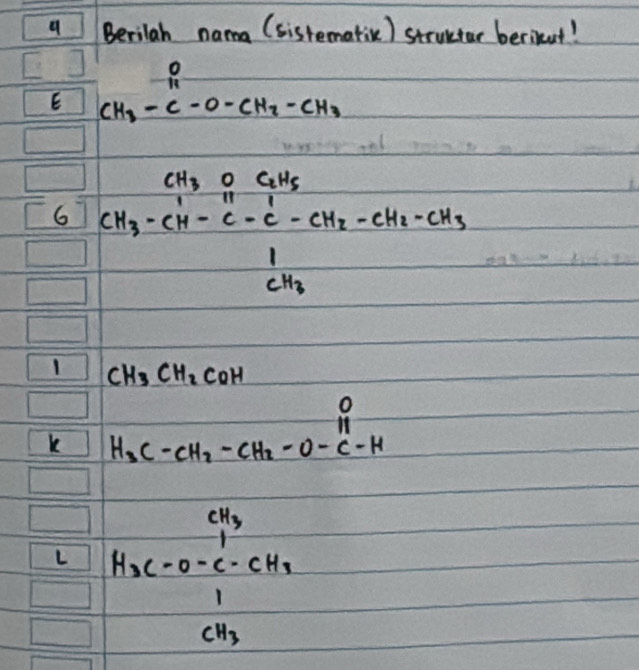 4 Berilah nama (sistematik) struktur berikut!
O
||
E CH3 - C - O - CH2 - CH3
CH3 O C2H5
| || |
G CH3 - CH - C - C - CH2 - CH2 - CH3
|
CH3
I CH3 CH2 COH
O
||
K H3C - CH2 - CH2 - O - C - H
CH3
|
L H3C - O - C - CH3
|
CH3